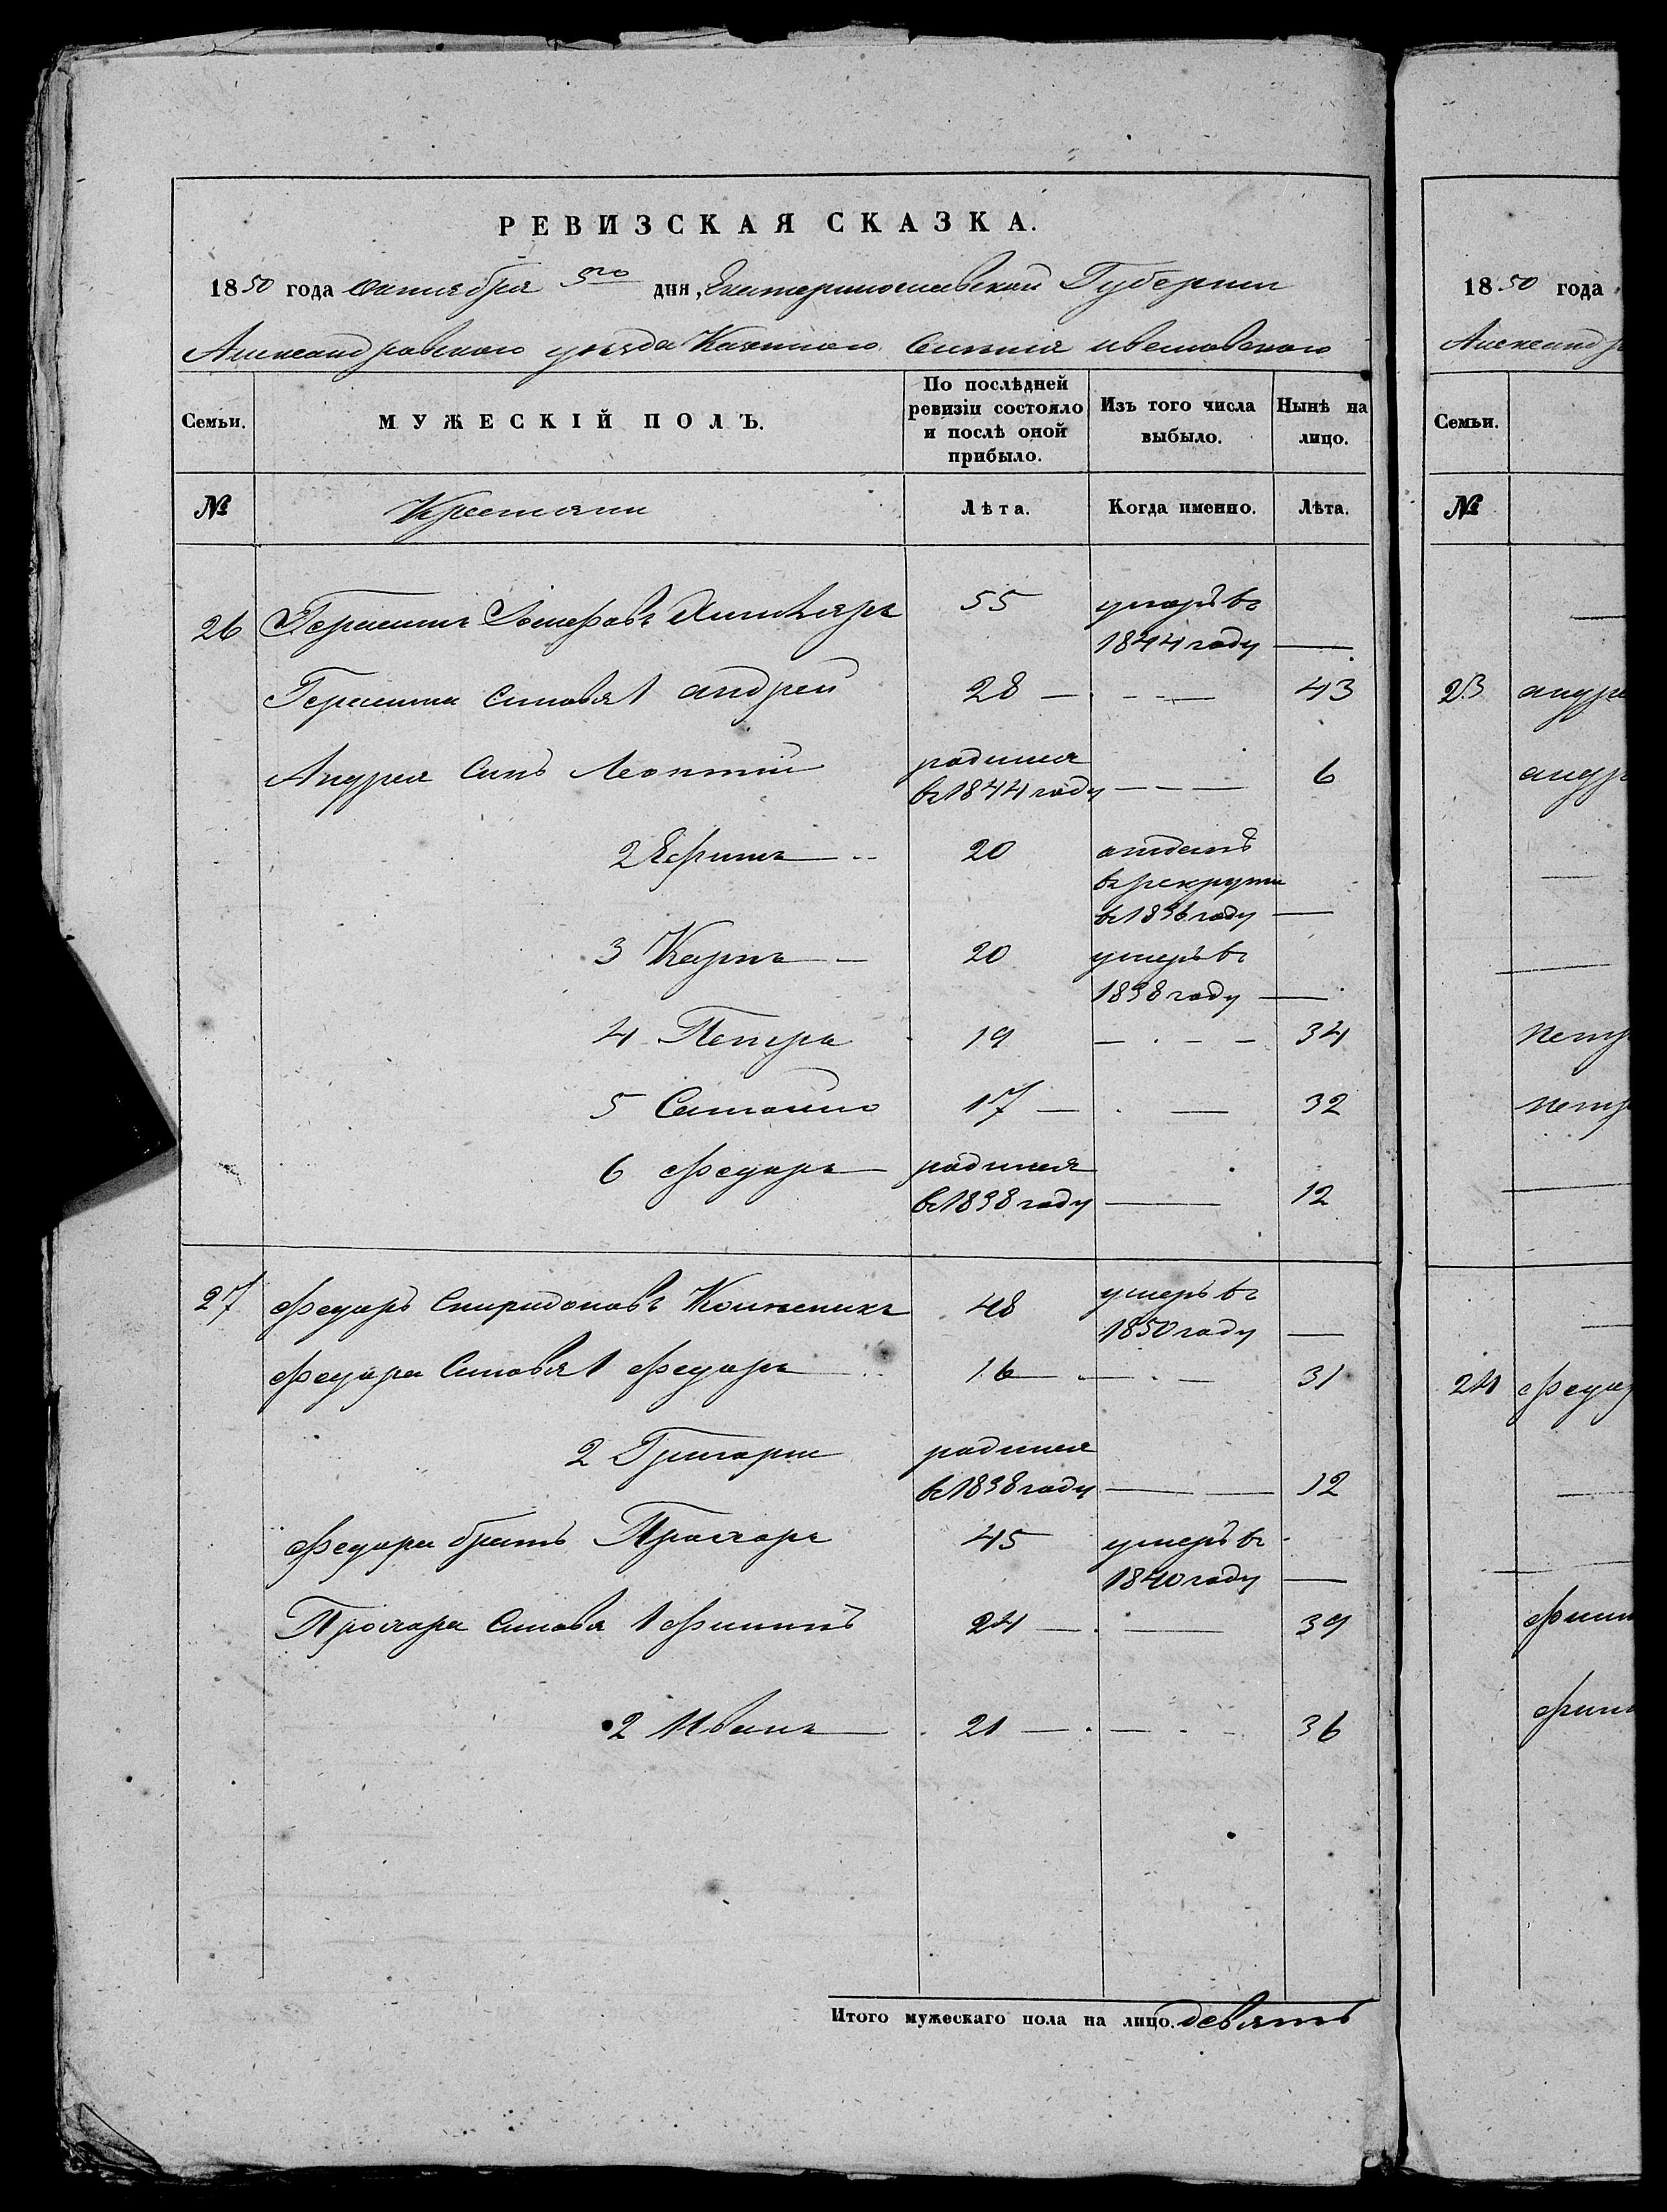 РЕВИЗСКАЯ СКАЗКА.
1850 года Октября 5го дня, Екатеринославской Губернии
Александровского уезда Казенного Селения
Семьи. МУЖЕСКІЙ ПОЛЪ. По послѣдней ревизіи состояло и послѣ оной прибыло. Изъ того числа выбыло. Нынѣ на лицо.
№ Крестяни Лѣта. Когда именно. Лѣта.
26 Герасимъ 55 умеръ въ
1844 году —
Герасима Синовя 1 андрей 28 — — 43
Андрея Синъ Леонтий родился
въ 1844 году — 6
2 Ефимъ — 20 отданъ
въ рекруты
въ 1836 году —
3 Карпъ — 20 умеръ въ
1838 году —
4 Петръ 19 — 34
5 Самойло 17 — — 32
6 Федоръ — родился
въ 1838 году — 12
27 Федоръ Спиридоновъ 48 умеръ въ
1850 году —
Федора Синовя 1 Федоръ 16 — — 31
2 Григорий родился
въ 1838 году — 12
Федора братъ Прохоръ 45 умеръ въ
1840 году —
Прохора Синовя 1 Филипъ 24 — — 39
2 Иванъ — 21 — — 36
Итого мужескаго пола на лицо. девять
1850 года
Александр
Семьи.
№
23 андре
андр
петр
петр
24 Федор
Фили
Фили